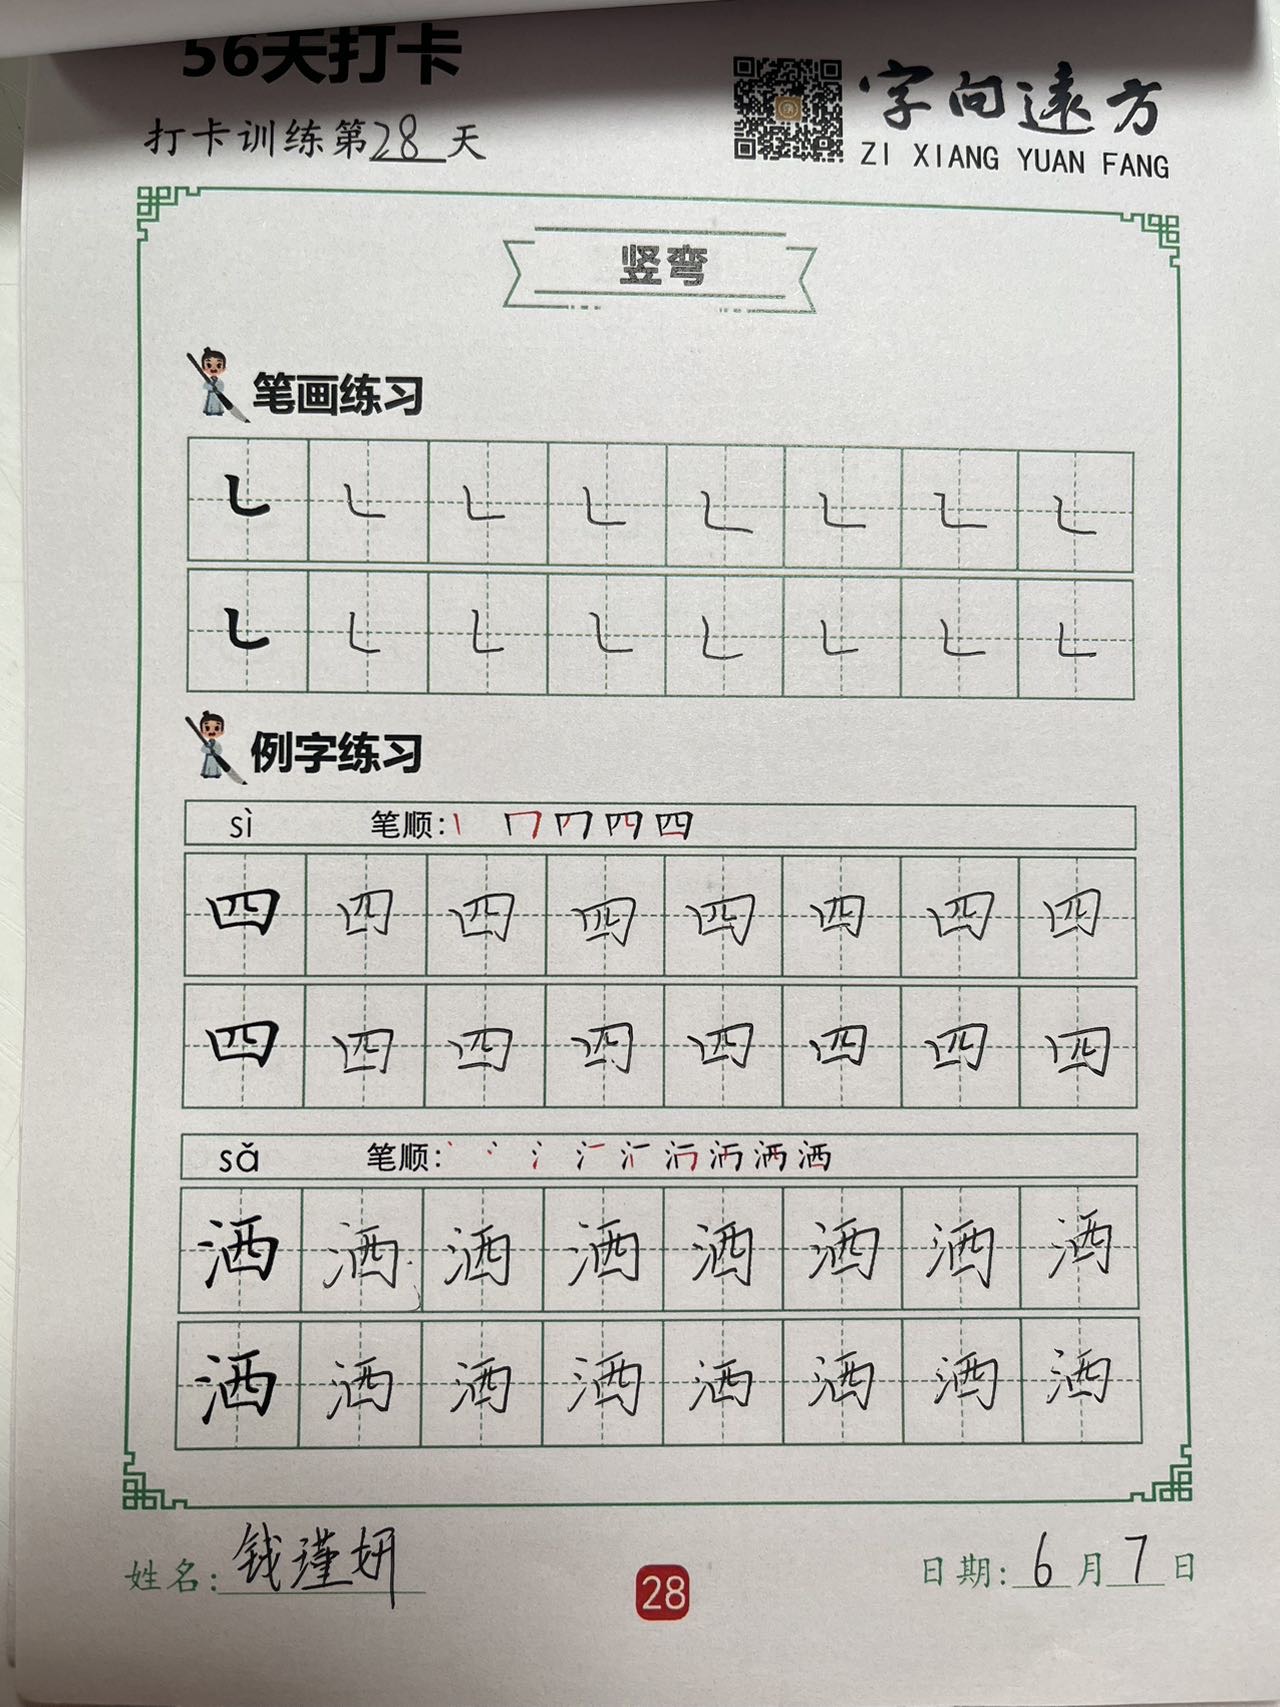 56天打卡
打卡训练第28天
字向远方
ZI XIANG YUAN FANG
竖弯
笔画练习
㇄㇄㇄㇄㇄㇄㇄㇄
㇄㇄㇄㇄㇄㇄㇄㇄
例字练习
sì 笔顺:
四四四四四四四四
四四四四四四四四
sǎ 笔顺:
洒洒洒洒洒洒洒洒
洒洒洒洒洒洒洒洒
姓名:钱瑾妍
28
日期:6月7日